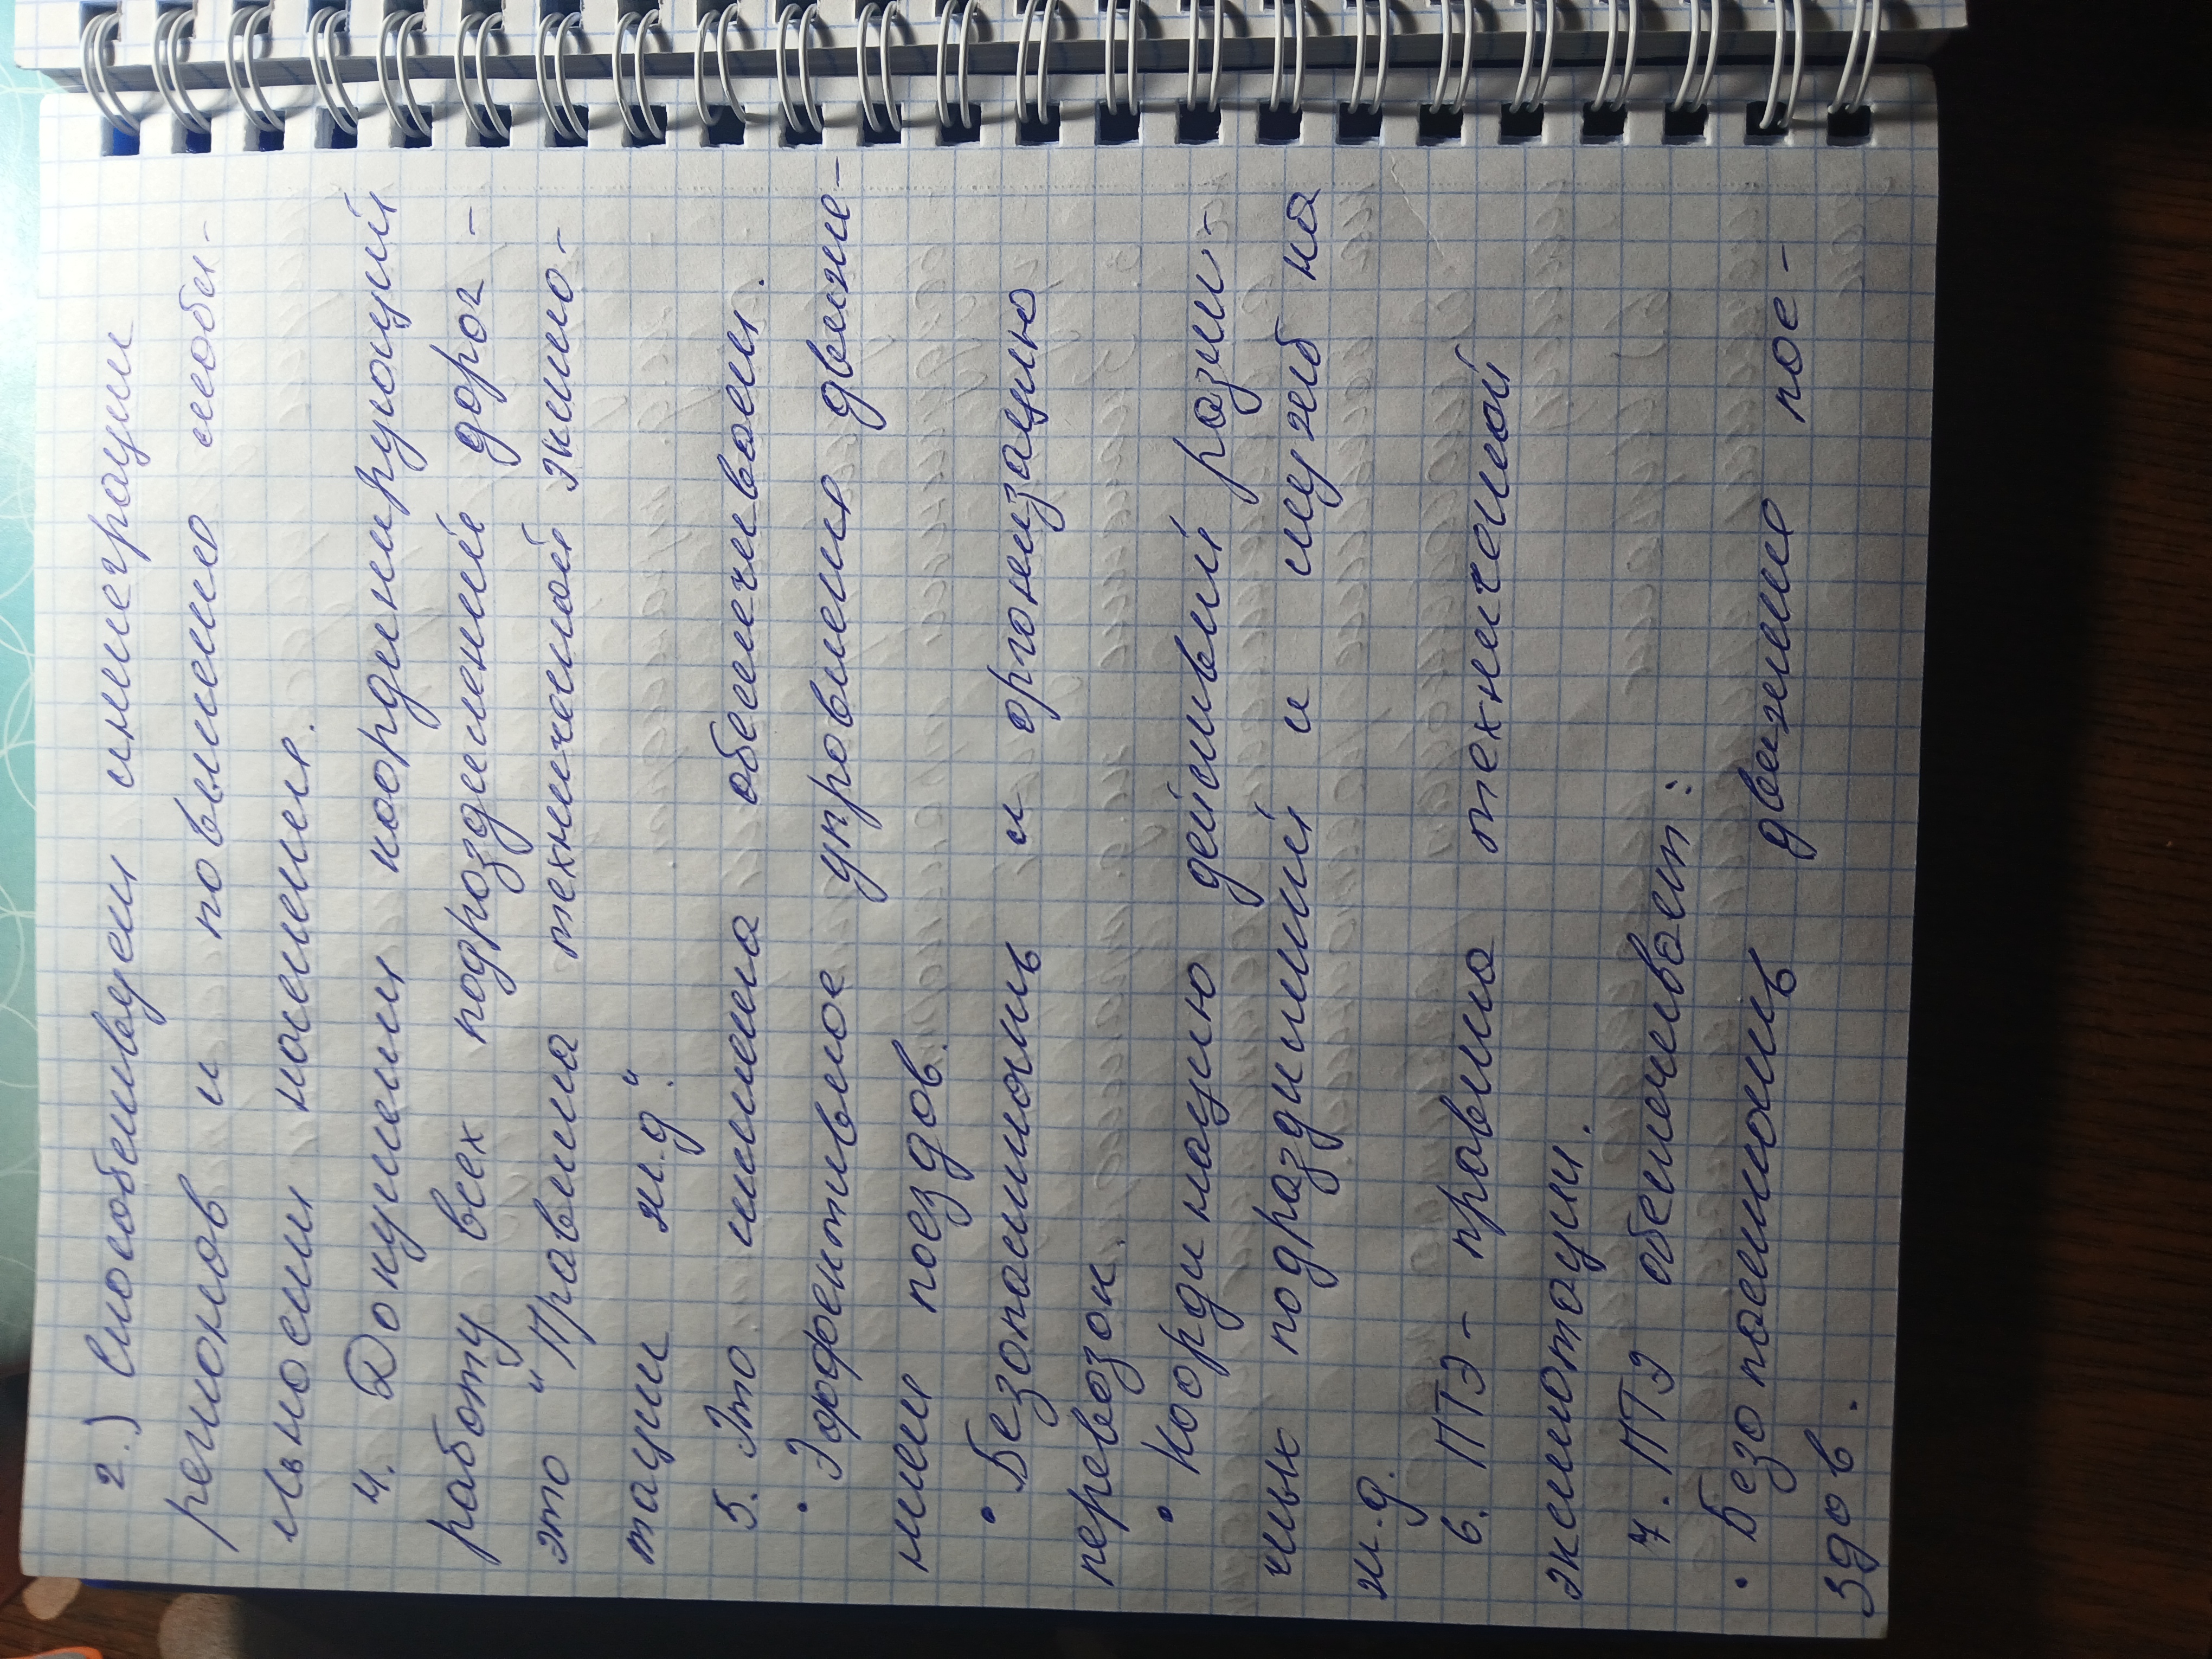 2.) Способствует интеграции
регионов и повышению моби-
льности населения.
4. Документ координирующий
работу всех подразделений дорог -
это "Правила технической эксплуа-
тации ж.д."
5. Это система обеспечивает.
• Эффективное управление движе-
нием поездов.
• Безопасность и организацию
перевозок.
• Координацию действий разли-
чных подразделений и служб на
ж.д.
6. ПТЭ - правила технической
эксплотации.
7. ПТЭ обеспечивает:
• Безопасность движения пое-
здов.